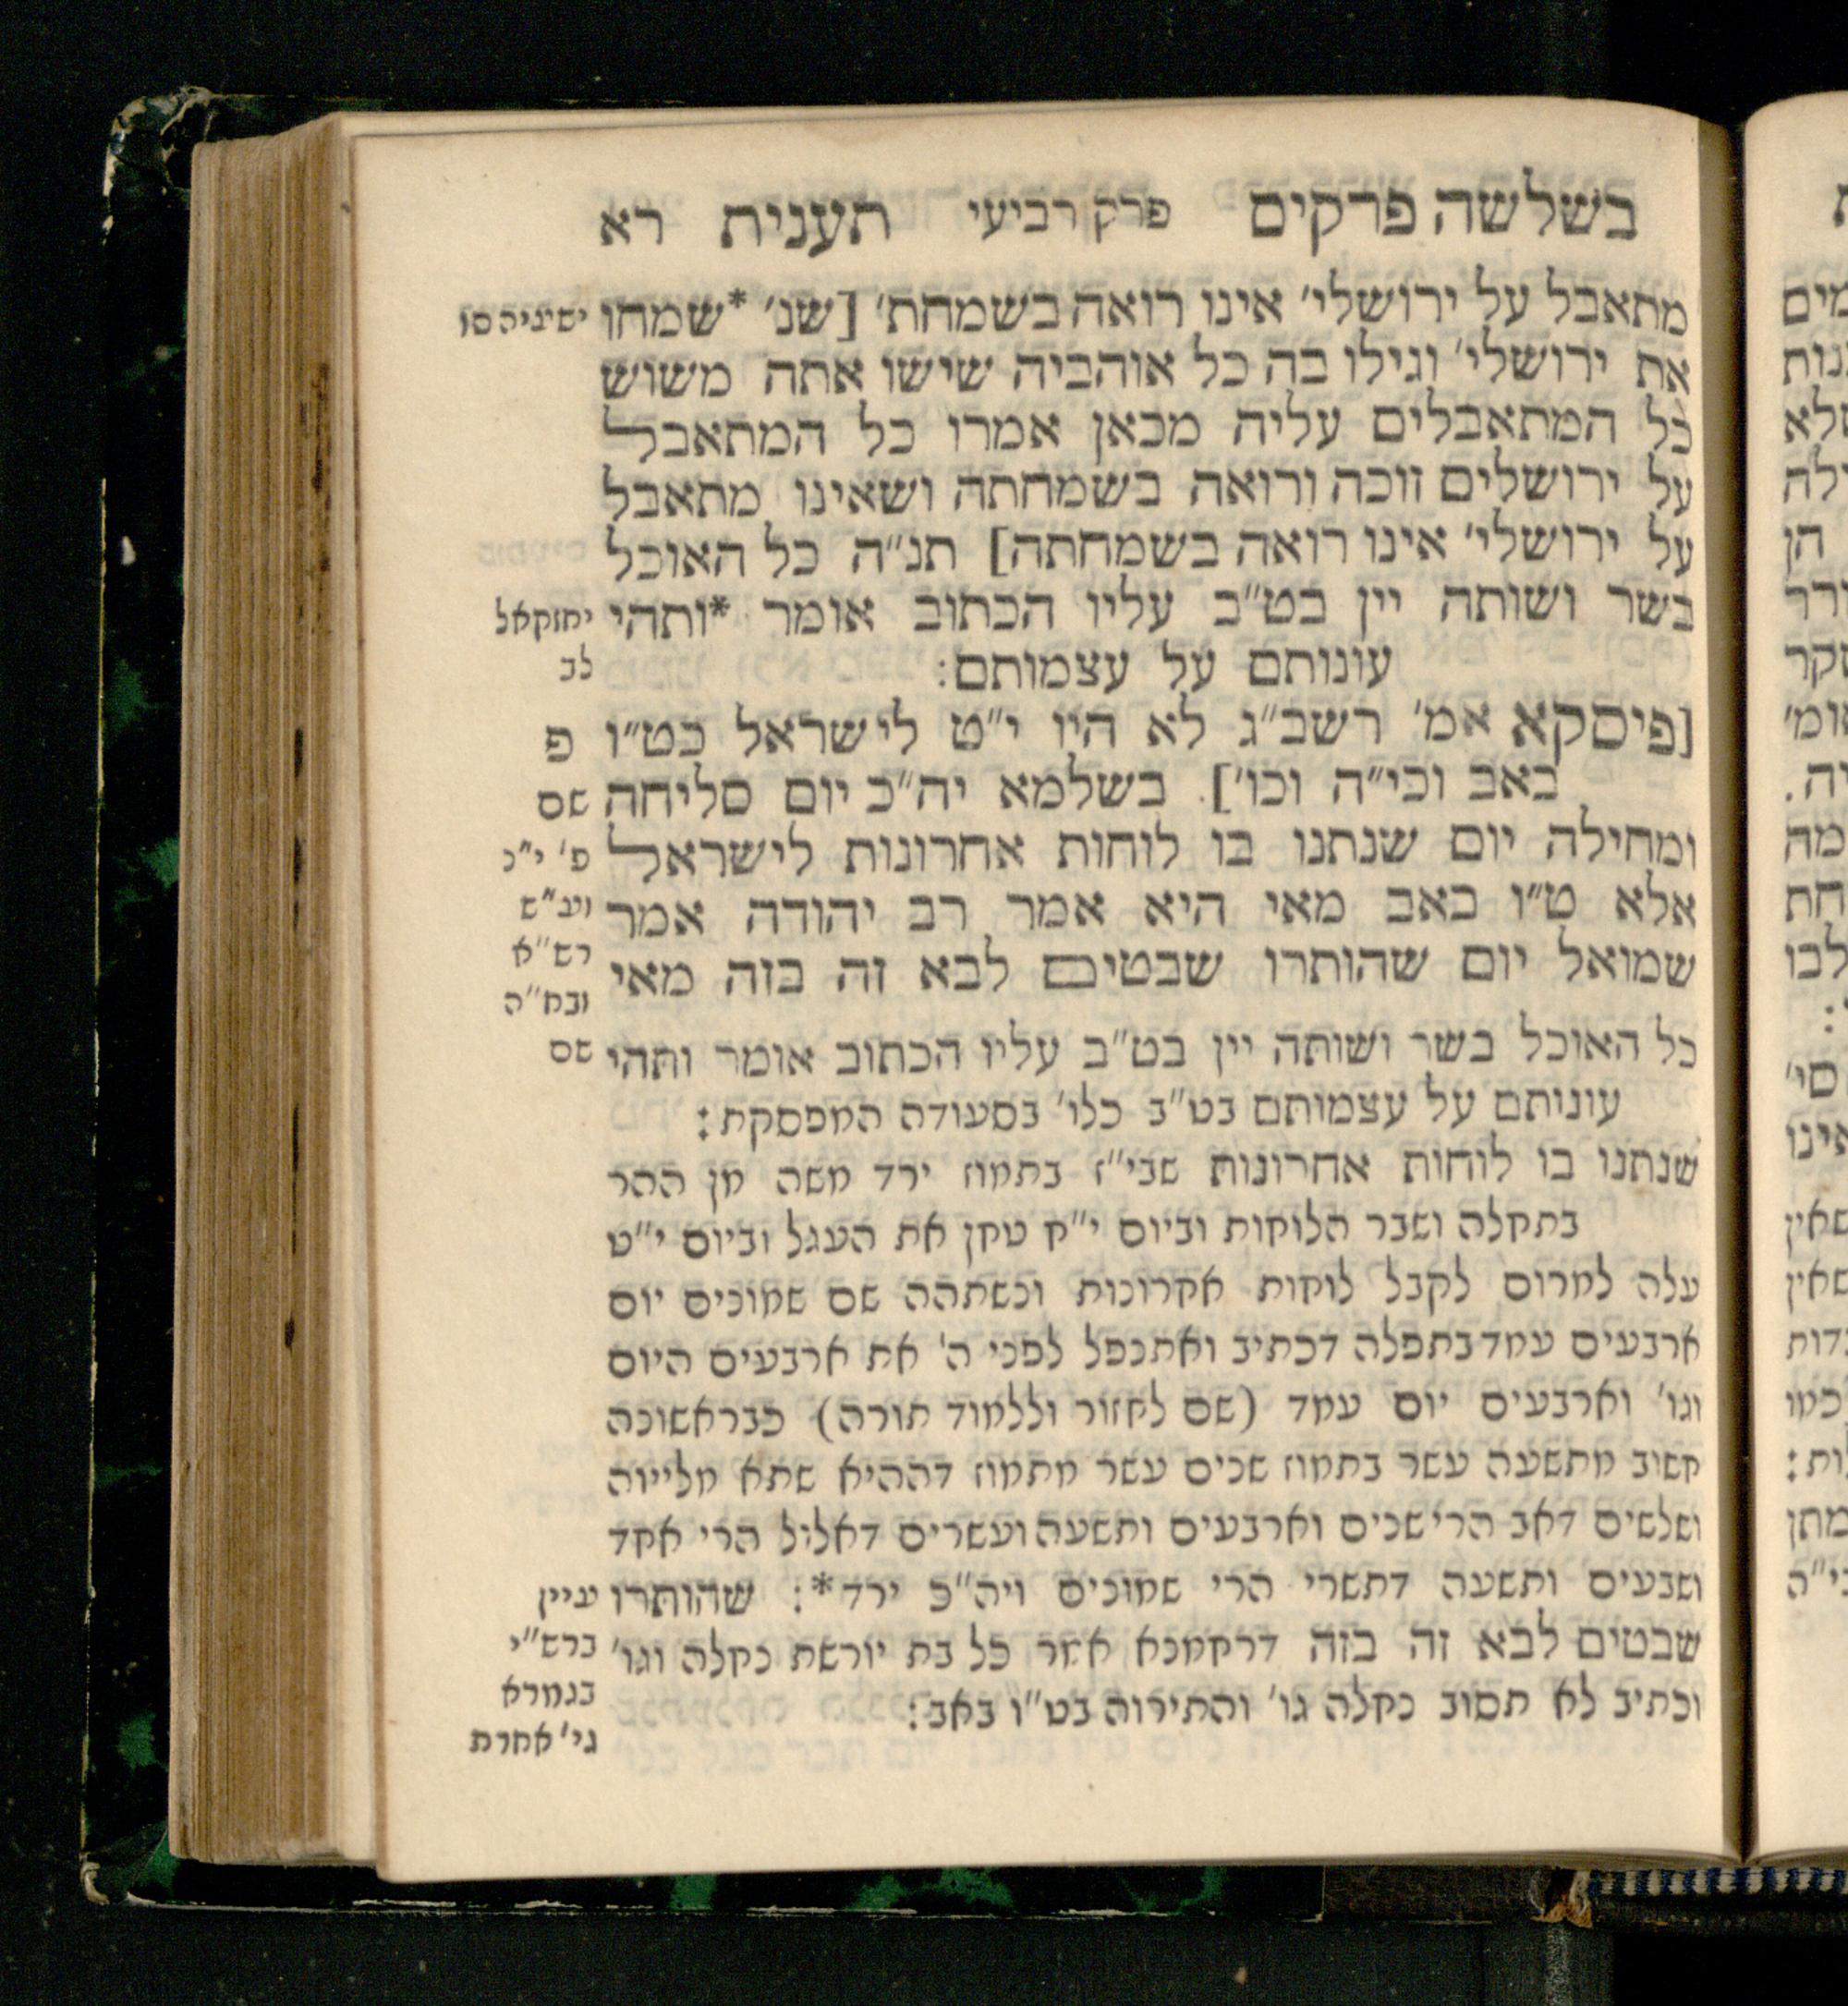 בשלשה פרקים פרק רביעי תענית רא
מתאבל על ירושלי' אינו רואה בשמחת' [שנ' *שמחו
ישעיה סו
את ירושלי' וגילו בה כל אוהביה שישו אתה משוש
כל המתאבלים עליה מכאן אמרו כל המתאבל
על ירושלים זוכה ורואה בשמחתה ושאינו מתאבל
על ירושלי' אינו רואה בשמחתה] תנ"ה כל האוכל
בשר ושותה יין בט"ב עליו הכתוב אומר *ותהי
יחזקאל
לב
עונותם על עצמותם:
[פיסקא אמ' רשב"ג לא היו י"ט לישראל כט"ו
פ
באב וכי"ה וכו']. בשלמא יה"כ יום סליחה
שם
ומחילה יום שנתנו בו לוחות אחרונות לישראל
פ' י"נ
אלא ט"ו באב מאי היא אמר רב יהודה אמר
ועב"ש
רש"א
שמואל יום שהותרו שבטים לבא זה בזה מאי
ובח"ה
כל האוכל בשר ושותה יין בט"ב עליו הכתוב אומר ותהי
שם
עונותם על עצמותם בט"ב כלו' בסעודה המפסקת:
שנתנו בו לוחות אחרונות שבי"ז בתמוז ירד משה מן ההר
בתחלה ושבר הלוחות וביום י"ח טחן את העגל וביום י"ט
עלה למרום לקבל לוחות אחרונות וכשתהה שם שמונים יום
ארבעים עמד בתפלה דכתיב ואתנפל לפני ה' את ארבעים היום
וגו' וארבעים יום עמד (שם לחזור וללמוד תורה) כבראשונה
חשוב מתשעה עשר בתמוז שנים עשר מתמוז דההיא שתא מלייוה
ושלשים דאב הרי שנים וארבעים ותשעה ועשרים דאלול הרי אחד
ושבעים ותשעה דתשרי הרי שמונים ויה"כ ירד*: שהותרו
עיין
שבטים לבא זה בזה דרחמנא אמר כל בת יורשת נחלה וגו'
ברש"י
בגמרא
וכתיב לא תסוב נחלה גו' והתירוה בט"ו באב:
גי' אחרת